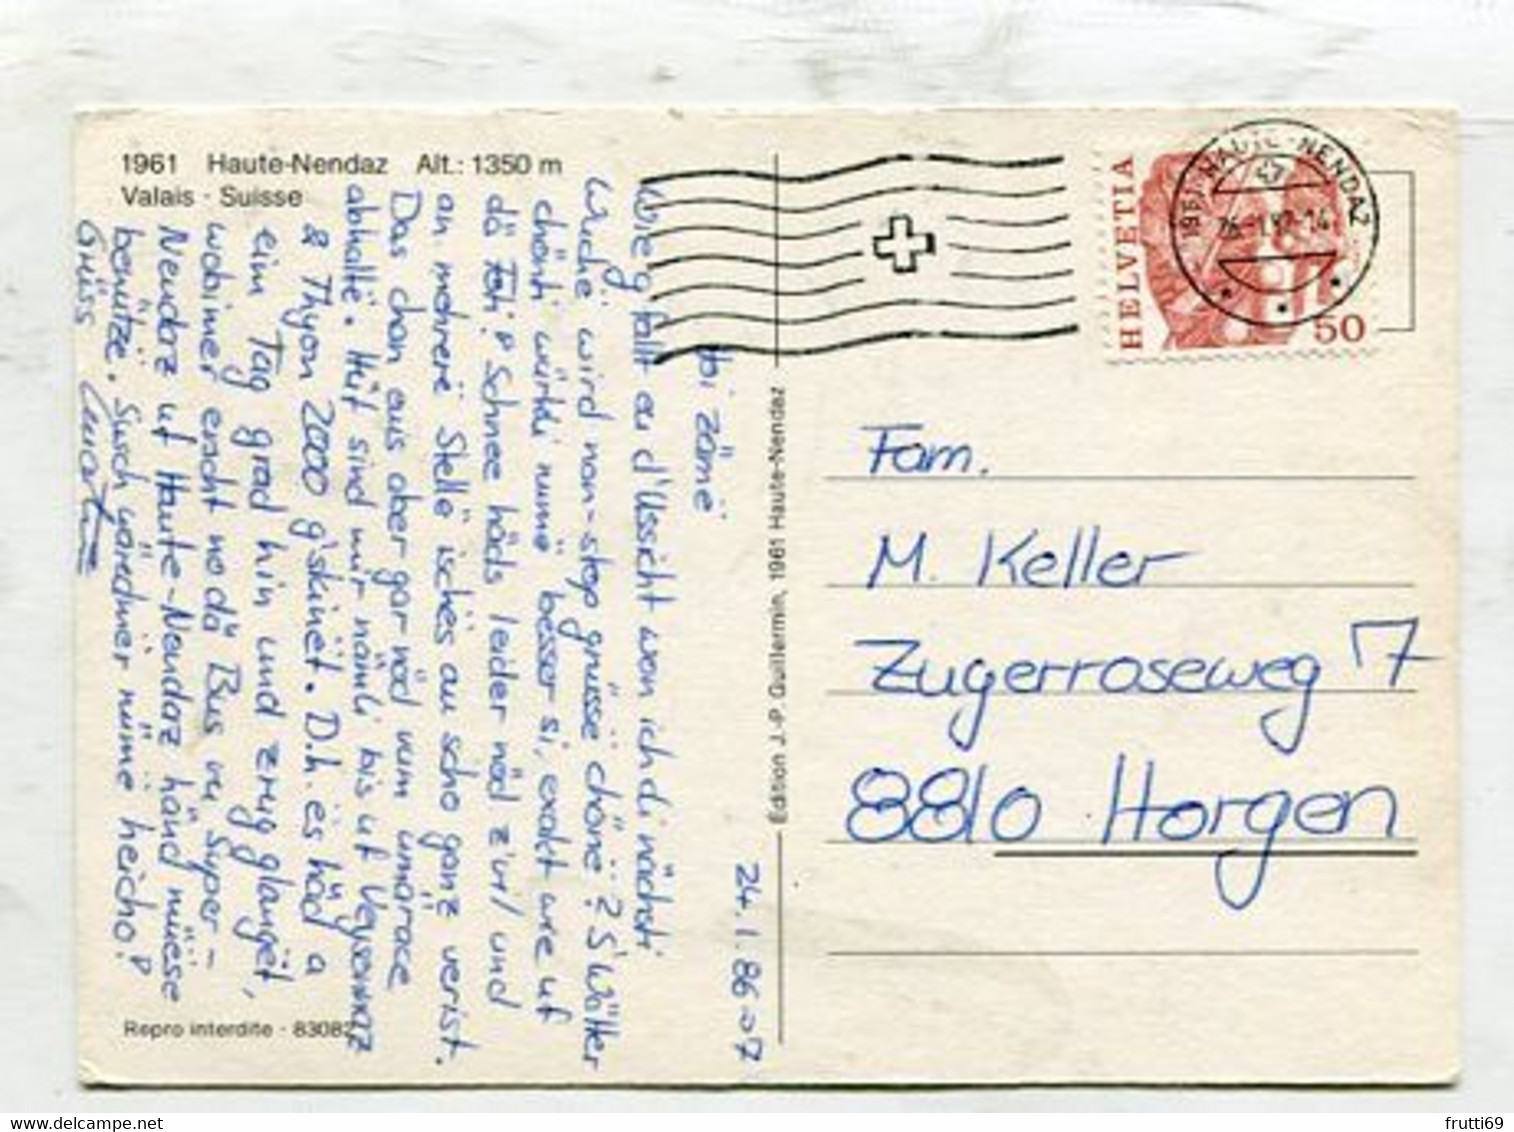 1961 Haute-Nendaz Alt.: 1350 m
Valais · Suisse
24.1.86 => 7
Hoi zämë
Wie g'fallt eu d'Ussicht won ich di nächsti
Wuchë wird non-stop gnüssë chönë? S'Wätter
chönti würkli nümë besser si, exakt wie uf
dä Foti! Schnee häds leider nöd z'vil und
an mehrerë Stellë ischës au scho ganz verist.
Das chan aus aber gar nöd vum umärace
abhaltë. Hüt sind mir nämli bis uf Veysonnaz
& Thyon 2000 g'skinët. D.h. ës häd a
eim Tag grad hin und zrug glangët,
wobimer erscht no dä Bus vu Syper-
Nendaz uf Haute-Nendaz händ müësë
benützë. Susch wäredmer nümë heicho!
Grüss Martin
Repro interdite · 83082
Edition J.-P. Guillermin, 1961 Haute-Nendaz
HELVETIA
50
1961 HAUTE-NENDAZ
Fam.
M. Keller
Zugerroseweg 7
8810 Horgen
frutti69